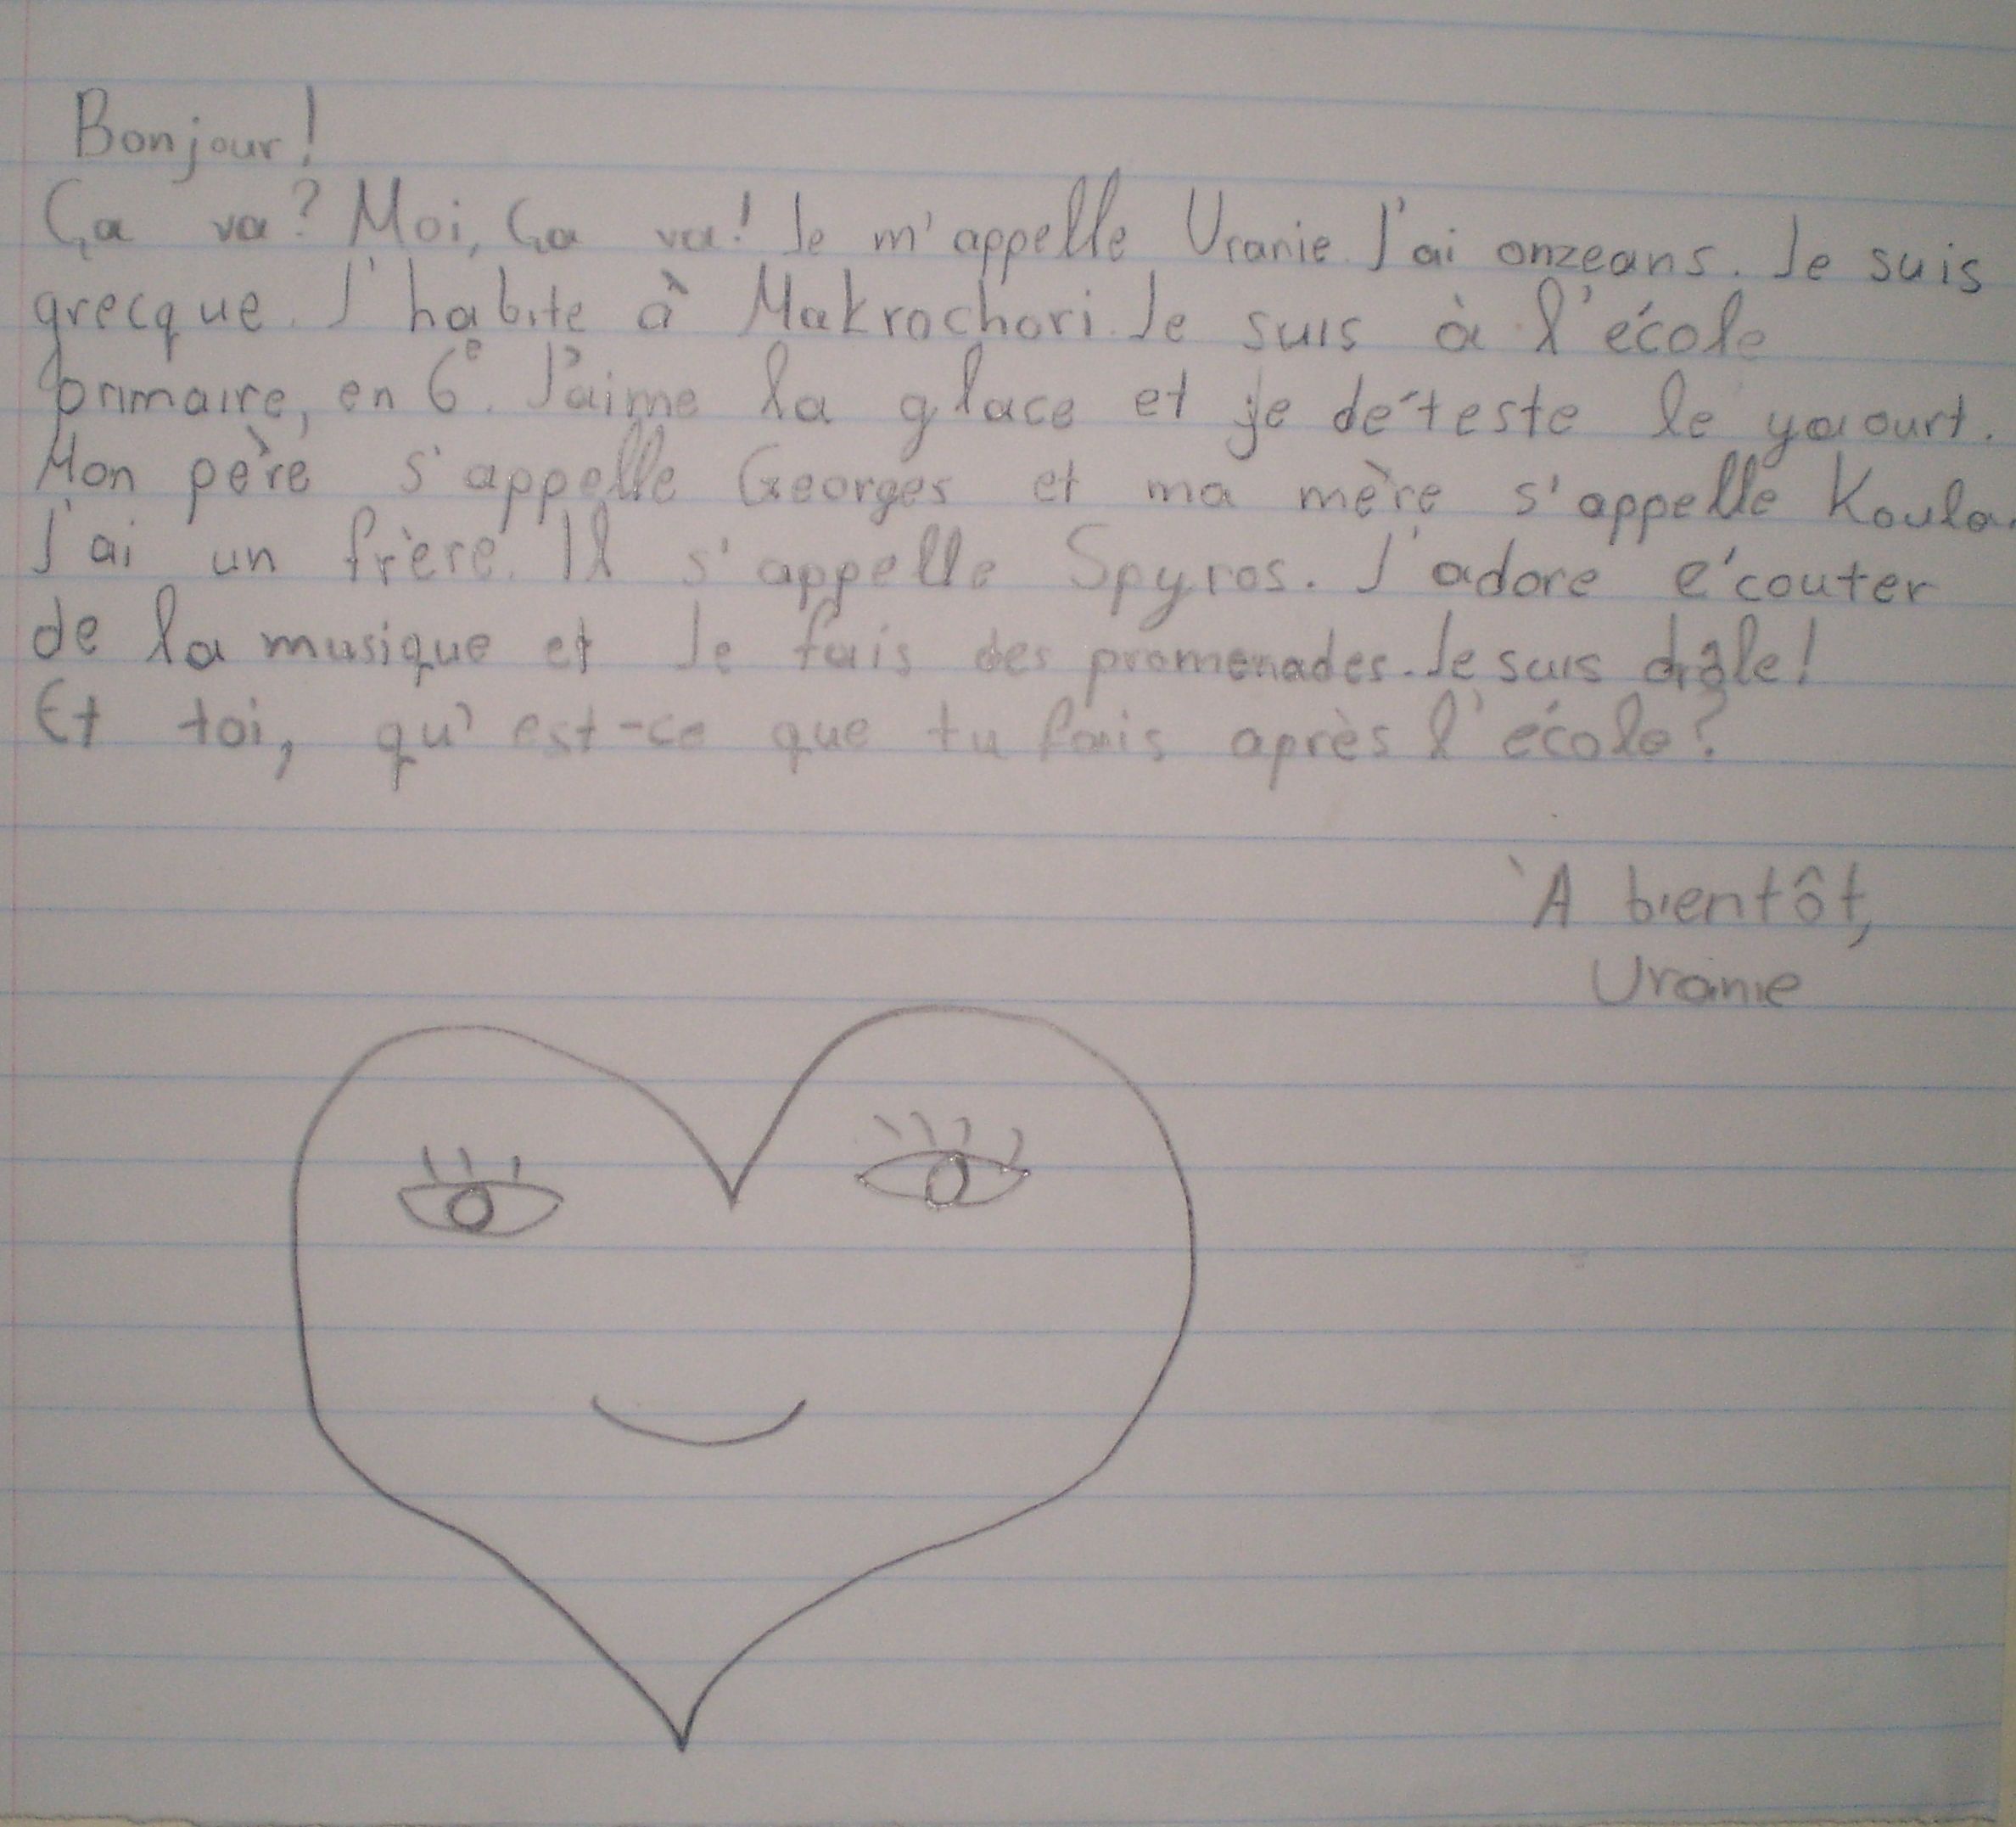 Bonjour!
Ça va? Moi, Ça va! Je m'appelle Uranie. J'ai onzeans. Je suis
grecque. J'habite à Makrochori. Je suis à l'école
primaire, en 6e. J'aime la glace et je déteste le yaourt.
Mon père s'appelle Georges et ma mère s'appelle Koula.
J'ai un frère. Il s'appelle Spyros. J'adore écouter
de la musique et Je fais des promenades. Je suis drôle!
Et toi, qu'est-ce que tu fais après l'école?
À bientôt,
Uranie